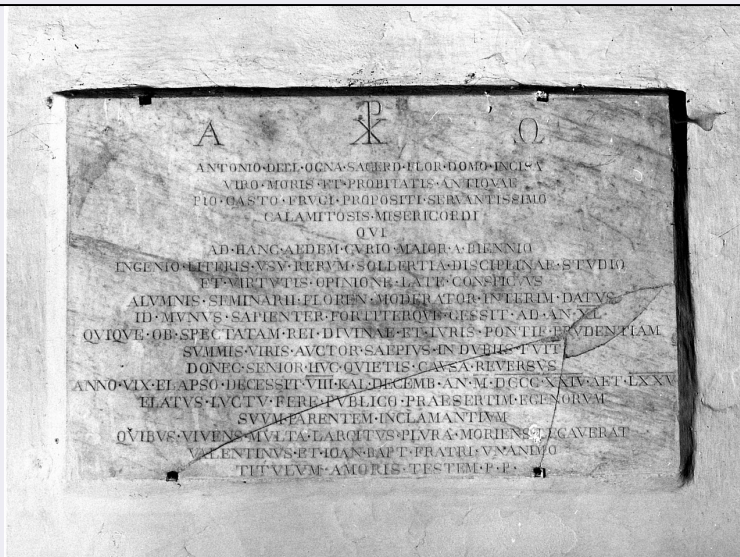 Α ☧ Ω
ANTONIO·DELL·OGNA·SACERD·FLOR·DOMO·INCISA
VIRO·MORIS·ET·PROBITATIS·ANTIQVAE
PIO·CASTO·FRVGI·PROPOSITI·SERVANTISSIMO
CALAMITOSIS·MISERICORDI
QVI
AD·HANC·AEDEM·CVRIO·MAIOR·A·BIENNIO
INGENIO·LITERIS·VSV·RERVM·SOLLERTIA·DISCIPLINAE·STVDIO
ET·VIRTVTIS·OPINIONE·LATE·CONSPICVS
ALVMNIS·SEMINARII·FLOREN·MODERATOR·INTERIM·DATVS
ID·MVNVS·SAPIENTER·FORTITERQVE·GESSIT·AD·AN·XL
QVIQVE·OB·SPECTATAM·REI·DIVINAE·ET·IVRIS·PONTIF·PRVDENTIAM
SVMMIS·VIRIS·AVCTOR·SAEPIVS·IN·DVBIIS·FVIT
DONEC·SENIOR·HVC·QVIETIS·CAVSA·REVERSVS
ANNO·VIX·ELAPSO·DECESSIT·VIII·KAL·DECEMB·AN·M·DCCC·XXIV·AET·LXXV
ELATVS·LVCTV·FERE·PVBLICO·PRAESERTIM·EGENORVM
SVVM·PARENTEM·INCLAMANTIVM
QVIBVS·VIVENS·MVLTA·LARGITVS·PLVRA·MORIENS·LEGAVERAT
VALENTINVS·ET·IOAN·BAPT·FRATRI·VNANIMO
TITVLVM·AMORIS·TESTEM·P·P·